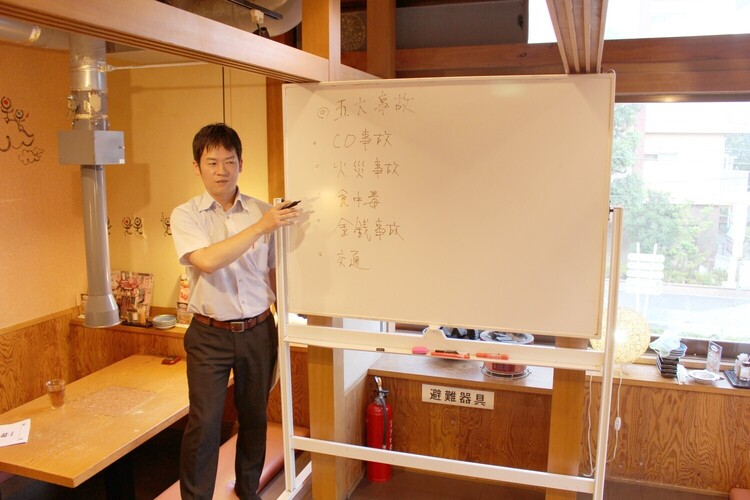 ◎ 五大事故
・CO事故
・火災事故
・食中毒
・金銭事故
・交通
避難器具